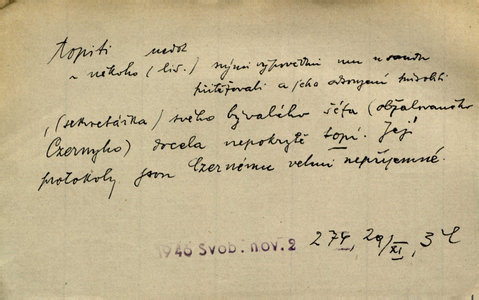 topiti nedok
~ někoho (lid.) svými výpověďmi mu u soudu
přitěžovati a jeho odsouzení způsobiti
„(sekretářka) svého bývalého šéfa (obžalovaného
Czernyho) docela nepokrytě topí. Její
protokoly jsou Czernému velmi nepříjemné.
1946 Svob. nov. 2
274, 29/XI, 3č